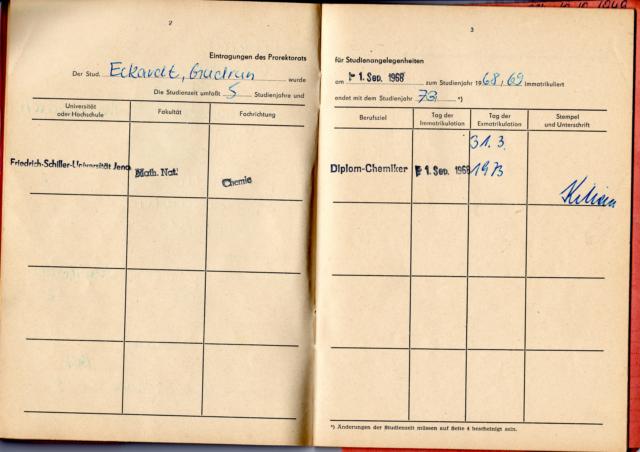 2
Eintragungen des Prorektorats
Der Stud. Eckardt, Gudrun wurde
Die Studienzeit umfaßt 5 Studienjahre und
Universität oder Hochschule
Fakultät
Fachrichtung
Friedrich-Schiller-Universität Jena
Math. Nat.
Chemie
3
für Studienangelegenheiten
am 1. Sep. 1968 zum Studienjahr 1968, 69 immatrikuliert
endet mit dem Studienjahr 73 *)
Berufsziel
Tag der Immatrikulation
Tag der Exmatrikulation
Stempel und Unterschrift
Diplom-Chemiker
1. Sep. 1968
31. 3.
1973
*) Änderungen der Studienzeit müssen auf Seite 4 bescheinigt sein.